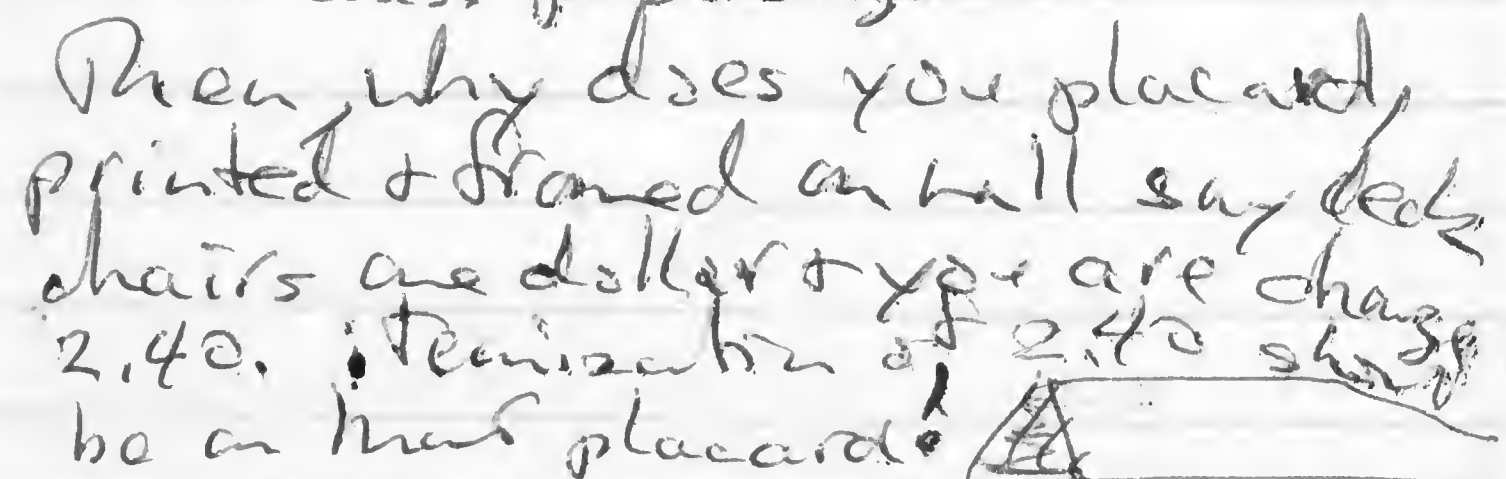 Then, why does you placard,
printed + framed on wall say deck
chairs one dollar + you are charge
2.40. itemization of 2.40 should
be on that placard!